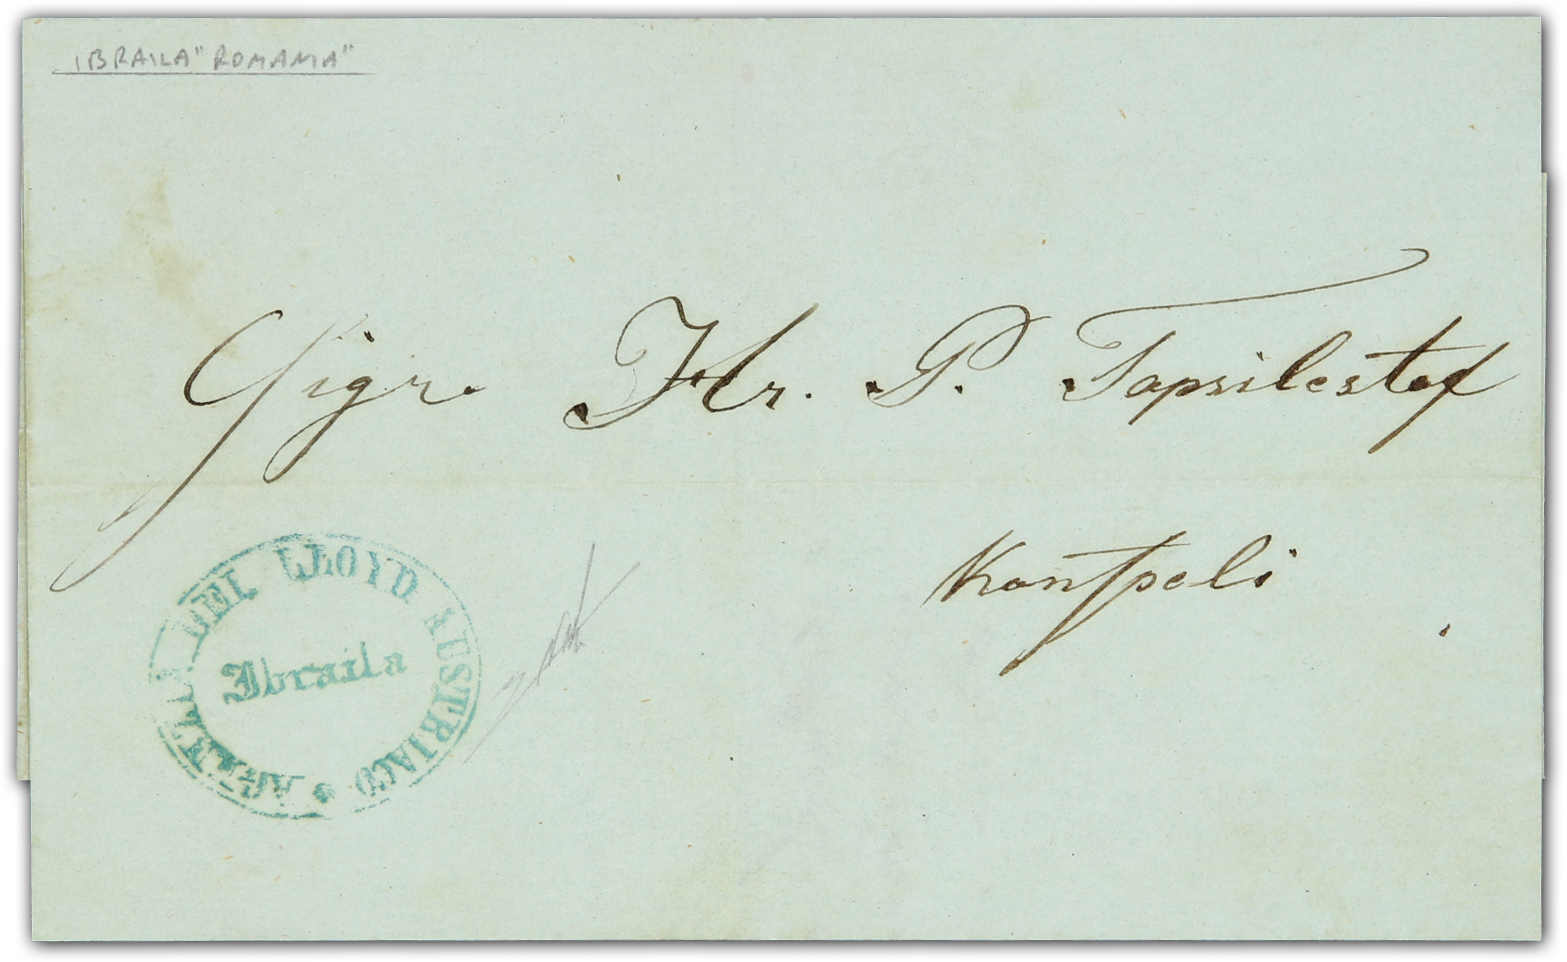 IBRAILA "ROMANIA"
Sigre Hr. P. Tapsilestof
Konspoli
AGENZIA DEL LLOYD AUSTRIACO
Ibraila